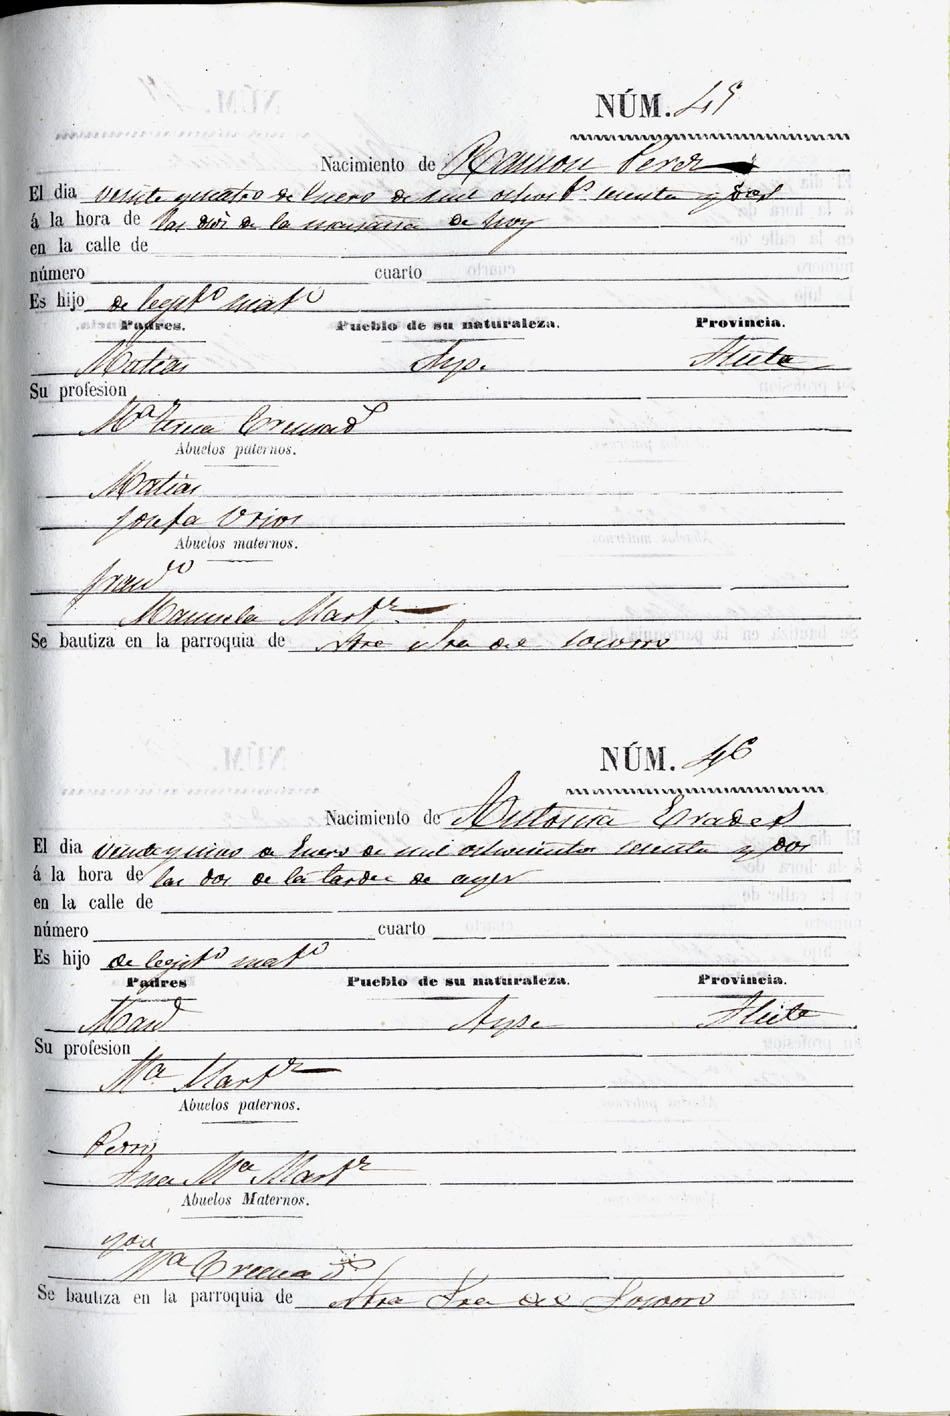 NÚM. 45
Nacimiento de Ramon Perez
El dia veinte y cuatro de Enero de mil ochos.tos sesenta y dos
á la hora de las diez de la mañana de hoy
en la calle de
número cuarto
Es hijo de legit.o mat.o
Padres. Pueblo de su naturaleza. Provincia.
Matias Aspe. Alicte
Su profesion
M.a Teresa Cremad.s
Abuelos paternos.
Matias
Josefa Urios
Abuelos maternos.
Fran.co
Manuela Mart.z
Se bautiza en la parroquia de Ntra Sra del Socorro
NÚM. 46
Nacimiento de Antonia Erades
El dia veinte y cinco de Enero de mil ochocientos sesenta y dos
á la hora de las dos de la tarde de ayer
en la calle de
número cuarto
Es hijo de legit.o mat.o
Padres Pueblo de su naturaleza. Provincia.
Aspe Alicte
Su profesion
M.a Mart.z
Abuelos paternos.
Pedro
Ana M.a Mart.z
Abuelos Maternos.
M.a Cremad.s
Se bautiza en la parroquia de Ntra Sra del Socorro